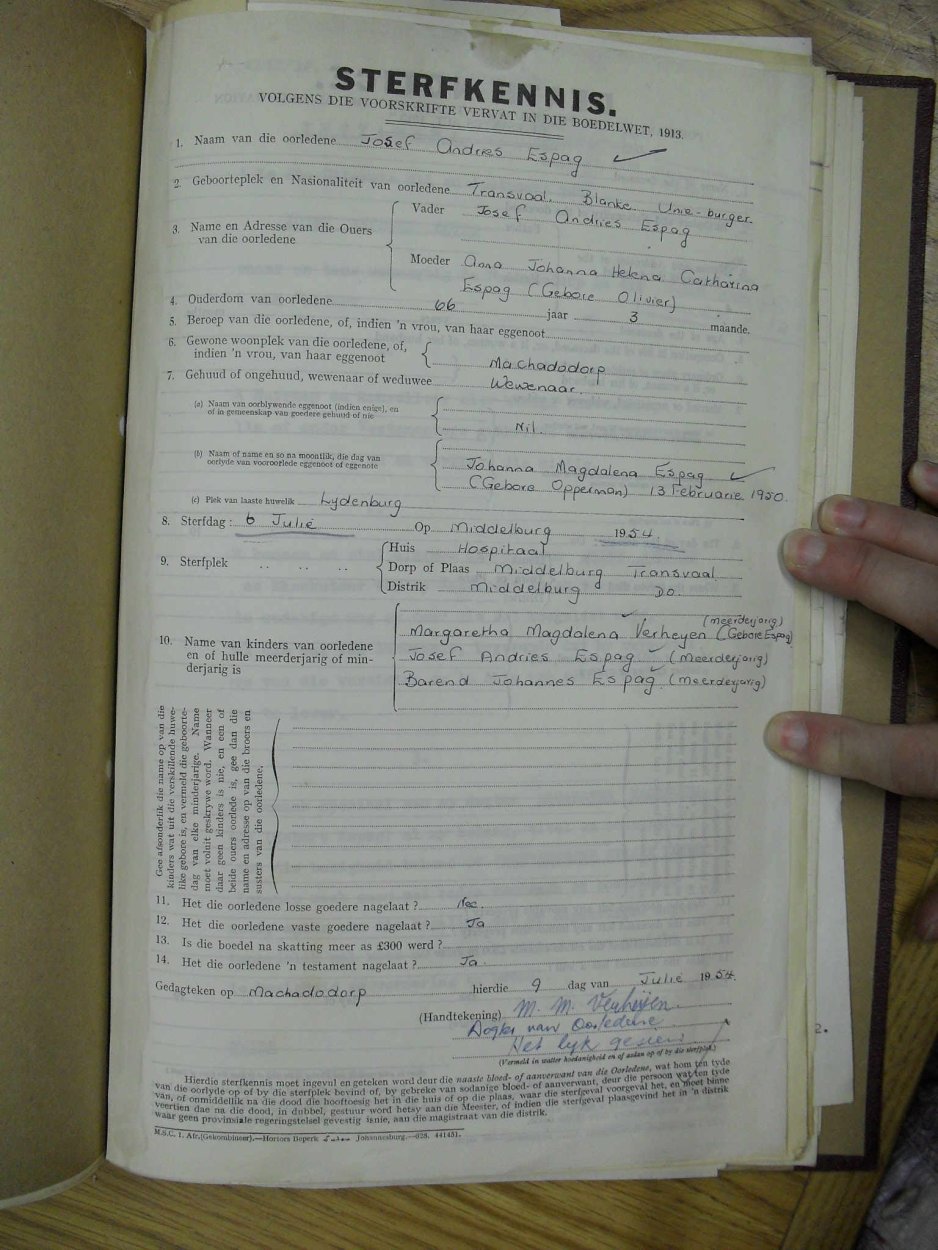 STERFKENNIS.
VOLGENS DIE VOORSKRIFTE VERVAT IN DIE BOEDELWET, 1913.
1. Naam van die oorledene Josef Andries Espag
2. Geboorteplek en Nasionaliteit van oorledene Transvaal. Blanke. Unie-burger.
3. Name en Adresse van die Ouers van die oorledene
Vader Josef Andries Espag
Moeder Anna Johanna Helena Catharina
Espag (Gebore Olivier)
4. Ouderdom van oorledene 66 jaar 3 maande.
5. Beroep van die oorledene, of, indien 'n vrou, van haar eggenoot
6. Gewone woonplek van die oorledene, of,
indien 'n vrou, van haar eggenoot Machadodorp
7. Gehuud of ongehuud, wewenaar of weduwee Wewenaar.
(a) Naam van oorblywende eggenoot (indien enige), en
of in gemeenskap van goedere gehuud of nie Nil.
(b) Naam of name en so na moontlik, die dag van
oorlyde van vooroorlede eggenoot of eggenote
Johanna Magdalena Espag
(Gebore Opperman) 13 Februarie 1950.
(c) Plek van laaste huwelik Lydenburg
8. Sterfdag: 6 Julie Op Middelburg 1954
9. Sterfplek
Huis Hospitaal
Dorp of Plaas Middelburg Transvaal
Distrik Middelburg Do.
10. Name van kinders van oorledene
en of hulle meerderjarig of min-
derjarig is
(meerderjarig)
Margaretha Magdalena Verheyen (Gebore Espag)
Josef Andries Espag (Meerderjarig)
Barend Johannes Espag. (Meerderjarig)
Gee afsonderlik die name op van die
kinders wat uit die verskillende huwe-
like gebore is, en vermeld die geboorte-
dag van elke minderjarige. Name
moet voluit geskrywe word. Wanneer
daar geen kinders is nie, en een of
beide ouers oorlede is, gee dan die
name en adresse op van die broers en
susters van die oorledene.
11. Het die oorledene losse goedere nagelaat? Nee.
12. Het die oorledene vaste goedere nagelaat? Ja
13. Is die boedel na skatting meer as £300 werd?
14. Het die oorledene 'n testament nagelaat? Ja.
Gedagteken op Machadodorp hierdie 9 dag van Julie 1954.
(Handtekening) M. M. Verheyen.
Dogter van Oorledene
Het lyk gesien
(Vermeld in watter hoedanigheid en of aldan op of by die sterfplek)
Hierdie sterfkennis moet ingevul en geteken word deur die naaste bloed- of aanverwant van die Oorledene, wat hom ten tyde
van die oorlyde op of by die sterfplek bevind of, by gebreke van sodanige bloed- of aanverwant, deur die persoon wat ten tyde
van, of onmiddelik na die dood die hooftoesig het in die huis of op die plaas, waar die sterfgeval voorgeval het, en moet binne
veertien dae na die dood, in dubbel, gestuur word hetsy aan die Meester, of indien die sterfgeval plaasgevind het in 'n distrik
waar geen provinsiale regeringstelsel gevestig is nie, aan die magistraat van die distrik.
M.S.C. 1. Afr.(Gekombineer).—Hortors Beperk Johannesburg.—028. 441451.
2.